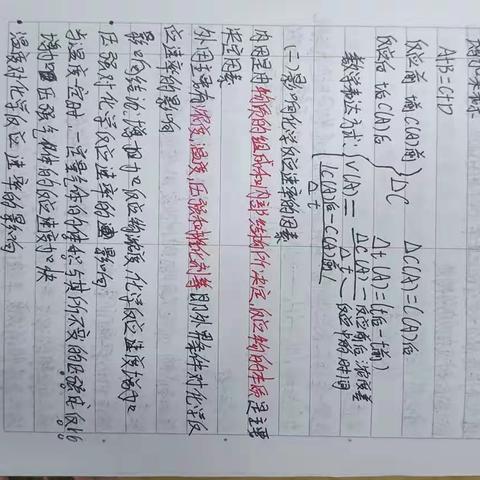 A+B=C+D
反应前 墙C(A)前 } ΔC ΔC(A)=C(A)后
反应后 论C(A)后 Δt(A)=(t后-t前)
数学表达方式: { V(A)= ΔC(A) / Δt
|C(A)后-C(A)前| / Δt
反应前后浓度差
反应中的时间
(二)影响化学反应速率的因素
内因是由物质的组成和内部结构所决定,反应物的性质是主要
决定因素
外因主要有浓度,温度,压强和催化剂等因外界条件对化学反
应速率的影响
影响结论:增加反应物浓度,化学反应速度增加
• 压强对化学反应速率的影响
当温度定时,一定量气体的体积与其所受的压强成反比
增加压强气体的反应速度加快
• 温度对化学反应速率的影响